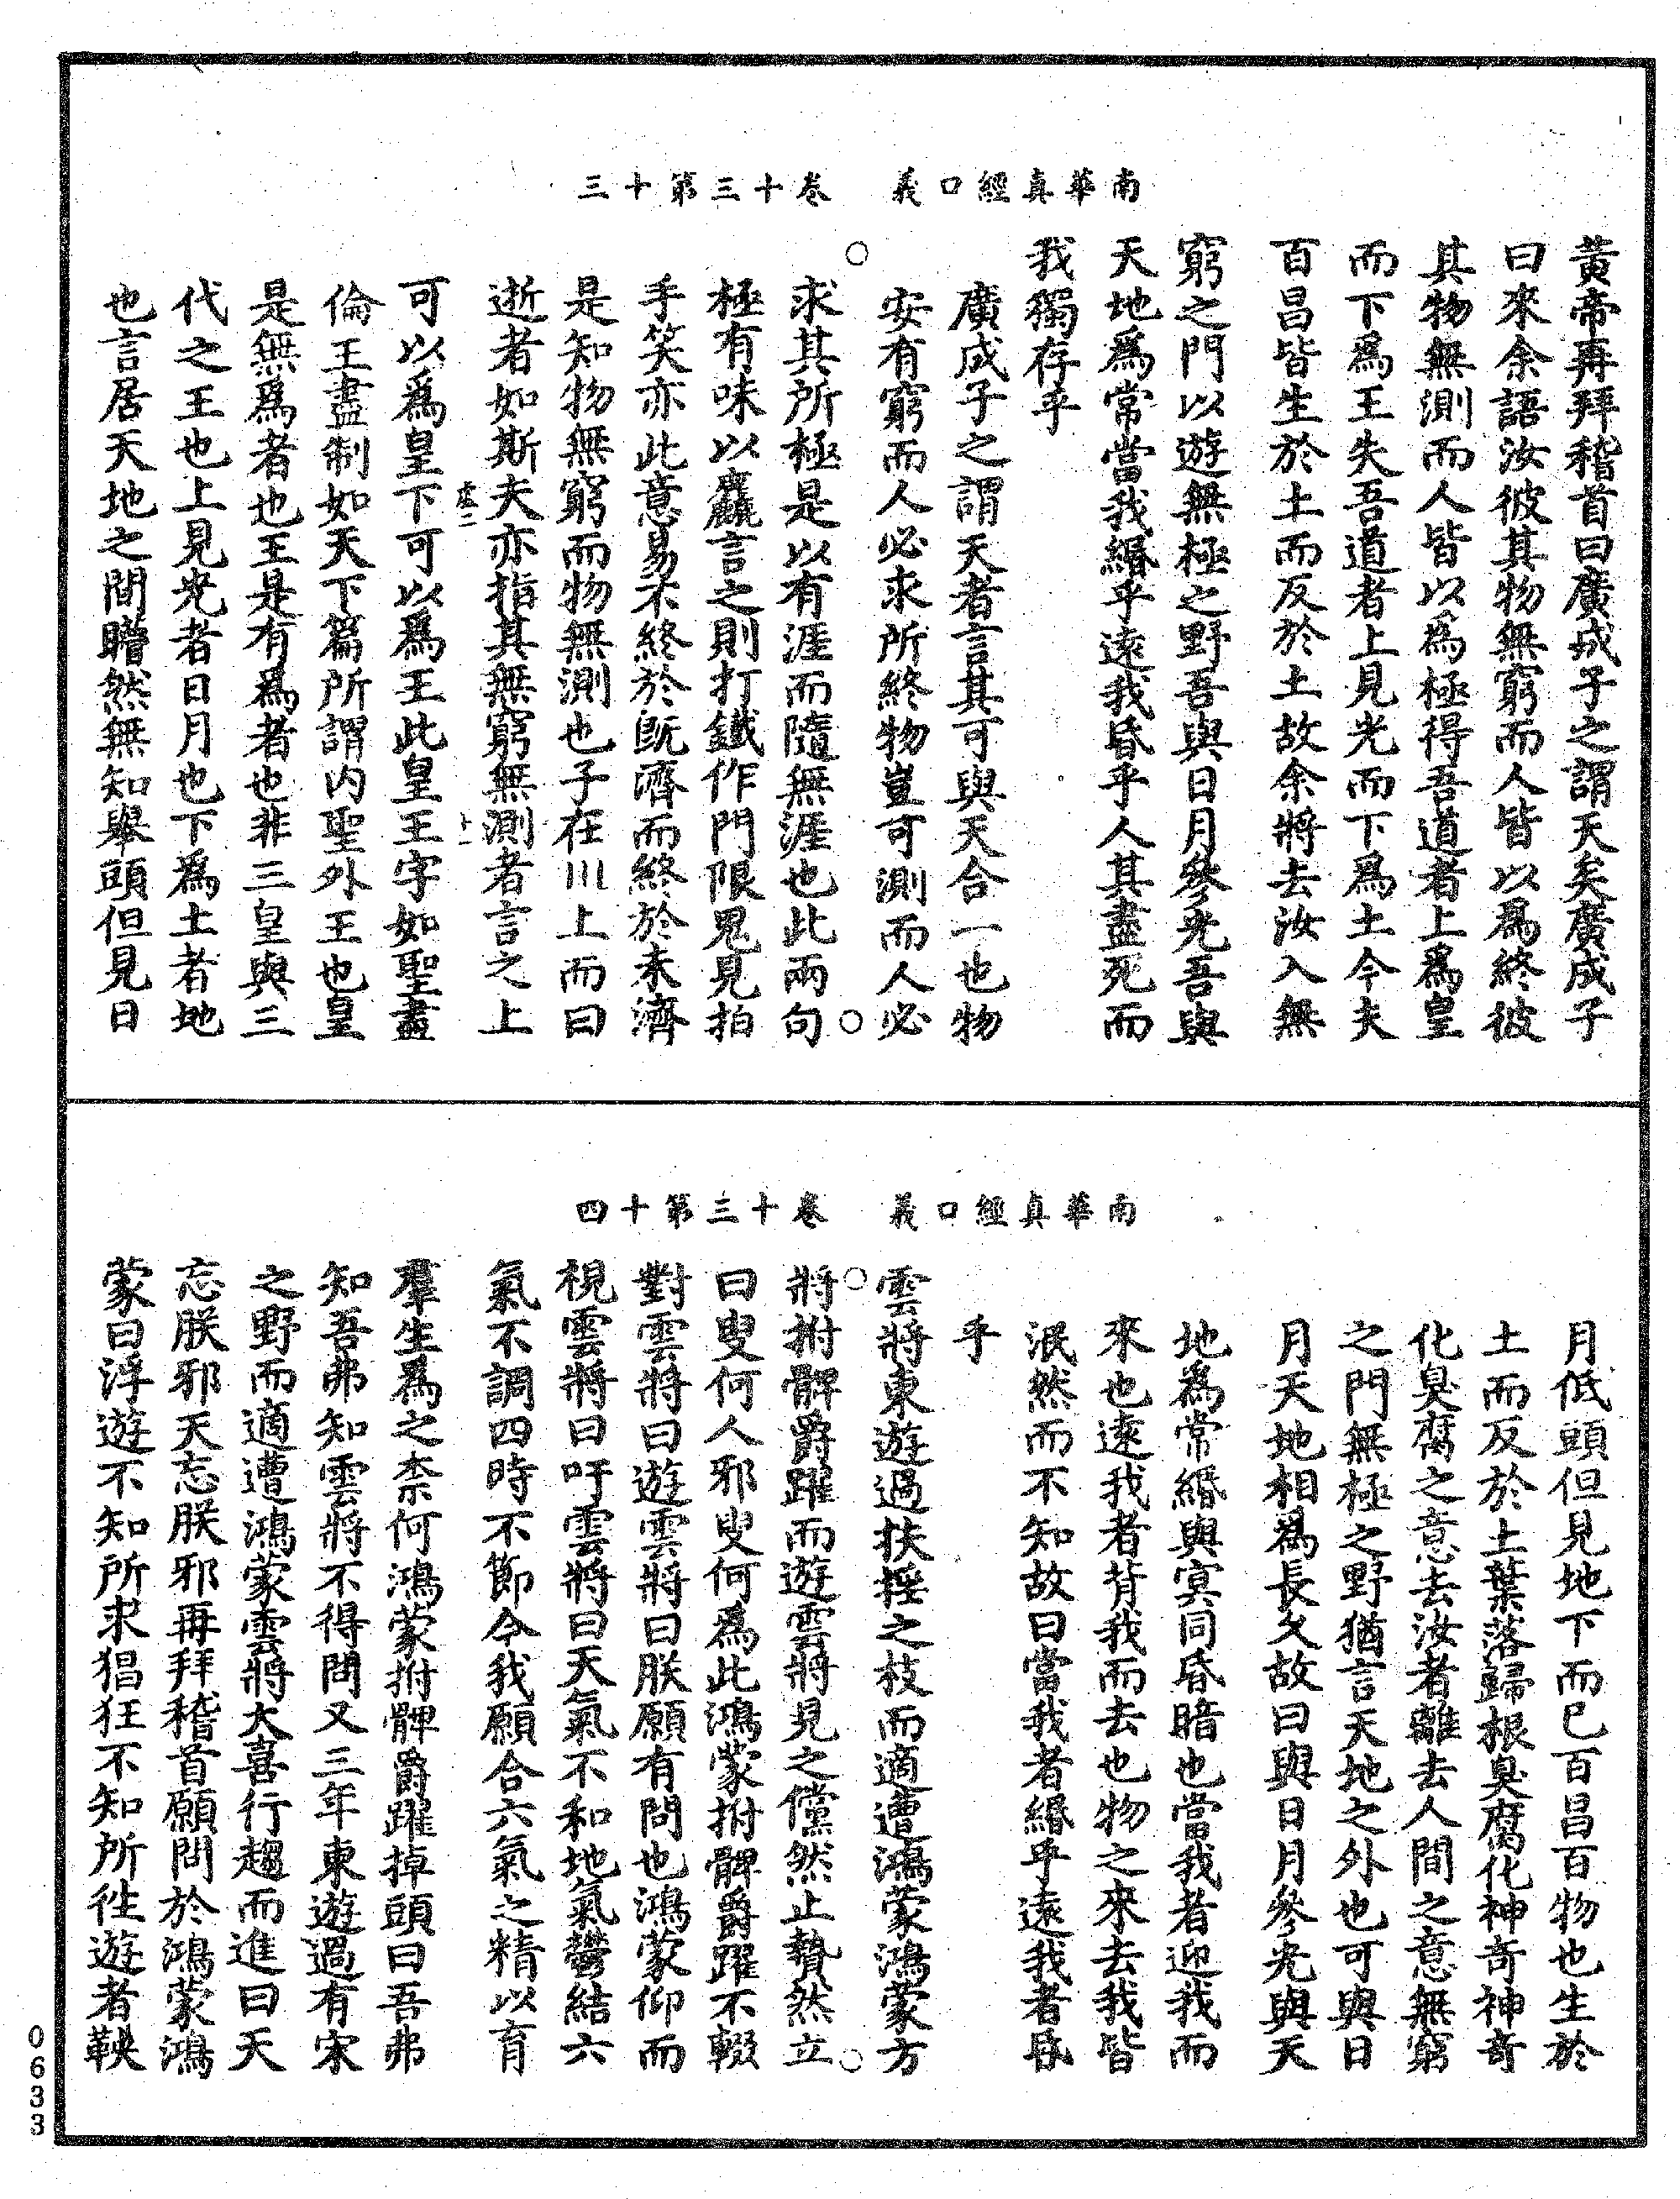 南華真經口義　卷十三第十三
黃帝再拜稽首曰廣成子之謂天矣廣成子
曰來余語汝彼其物無窮而人皆以爲終彼
其物無測而人皆以爲極得吾道者上爲皇
而下爲王失吾道者上見光而下爲土今夫
百昌皆生於土而反於土故余將去汝入無
窮之門以遊無極之野吾與日月參光吾與
天地爲常當我緡乎遠我昏乎人其盡死而
我獨存乎
廣成子之謂天者言其可與天合一也物
安有窮而人必求所終物豈可測而人必
求其所極是以有涯而隨無涯也此兩句
極有味以麤言之則打鐵作門限鬼見拍
手笑亦此意易不終於旣濟而終於未濟
是知物無窮而物無測也子在川上而曰
逝者如斯夫亦指其無窮無測者言之上
可以爲皇下可以爲王此皇王字如聖盡
倫王盡制如天下篇所謂內聖外王也皇
是無爲者也王是有爲者也非三皇與三
代之王也上見光者日月也下爲土者地
也言居天地之間瞢然無知舉頭但見日
南華真經口義　卷十三第十四
月低頭但見地下而已百昌百物也生於
土而反於土葉落歸根臭腐化神奇神奇
化臭腐之意去汝者離去人間之意無窮
之門無極之野猶言天地之外也可與日
月天地相爲長久故曰與日月參光與天
地爲常緡與冥同昏暗也當我者迎我而
來也遠我者背我而去也物之來去我皆
泯然而不知故曰當我者緡乎遠我者昏
乎
雲將東遊過扶搖之枝而適遭鴻蒙鴻蒙方
將拊髀爵躍而遊雲將見之儻然止贄然立
曰叟何人邪叟何爲此鴻蒙拊髀爵躍不輟
對雲將曰遊雲將曰朕願有問也鴻蒙仰而
視雲將曰吁雲將曰天氣不和地氣鬱結六
氣不調四時不節今我願合六氣之精以育
羣生爲之柰何鴻蒙拊髀爵躍掉頭曰吾弗
知吾弗知雲將不得問又三年東遊過有宋
之野而適遭鴻蒙雲將大喜行趨而進曰天
忘朕邪天忘朕邪再拜稽首願問於鴻蒙鴻
蒙曰浮遊不知所求猖狂不知所徃遊者鞅
0633